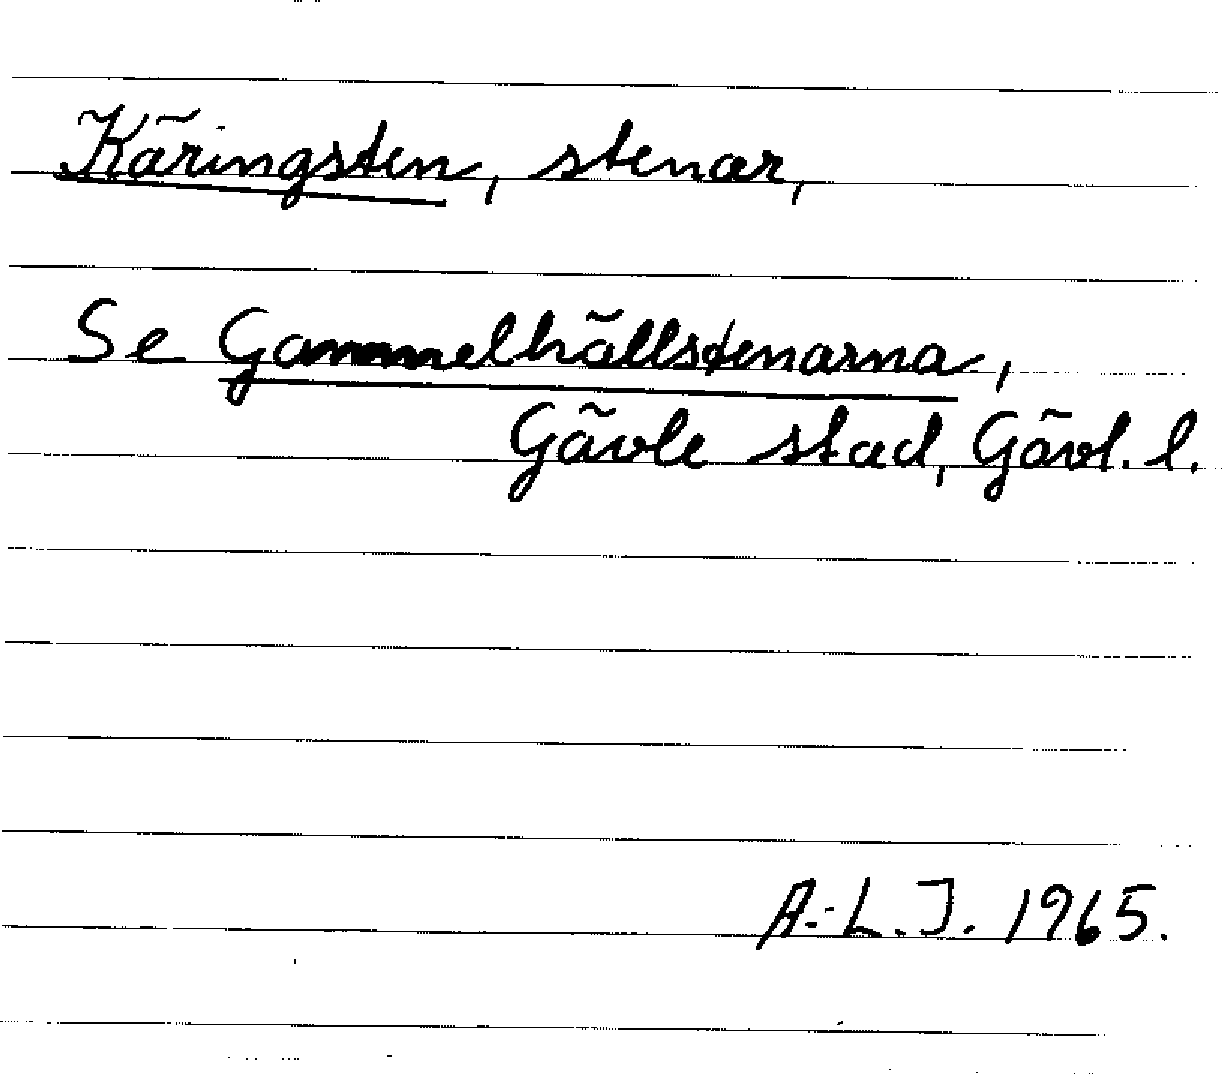 Käringsten, stenar,
Se Gammelhällstenarna,
Gävle stad, Gävl. l.
A.-L.J. 1965.